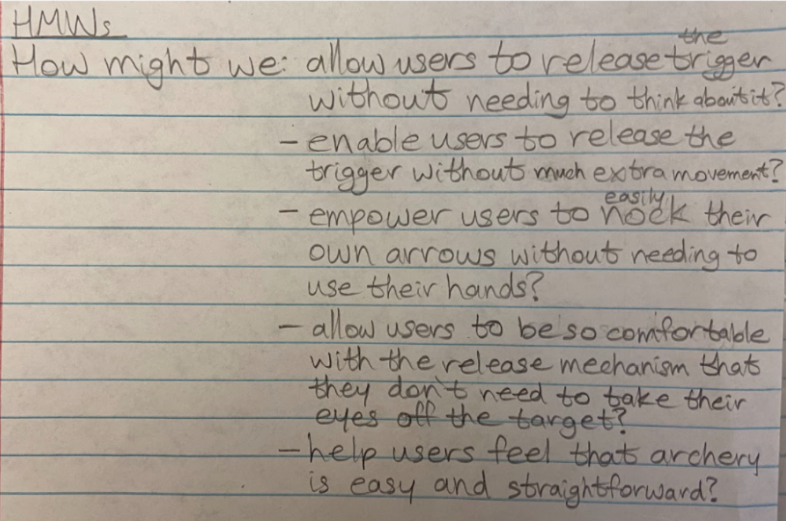 HMWs
How might we: allow users to release the trigger
without needing to think about it?
- enable users to release the
trigger without much extra movement?
- empower users to easily nock their
own arrows without needing to
use their hands?
- allow users to be so comfortable
with the release mechanism that
they don't need to take their
eyes off the target?
- help users feel that archery
is easy and straightforward?